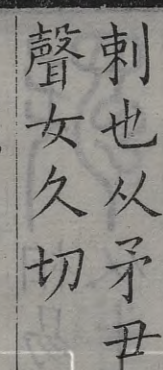 刺也从矛丑
聲女久切